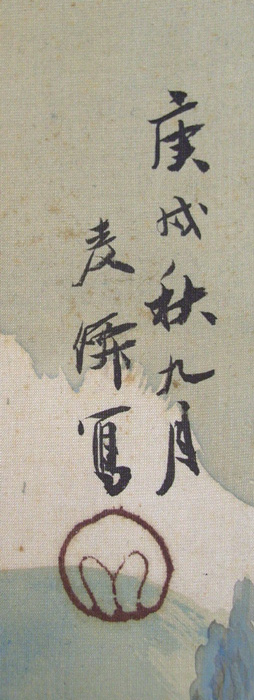 庚戌秋九月
麦僊写